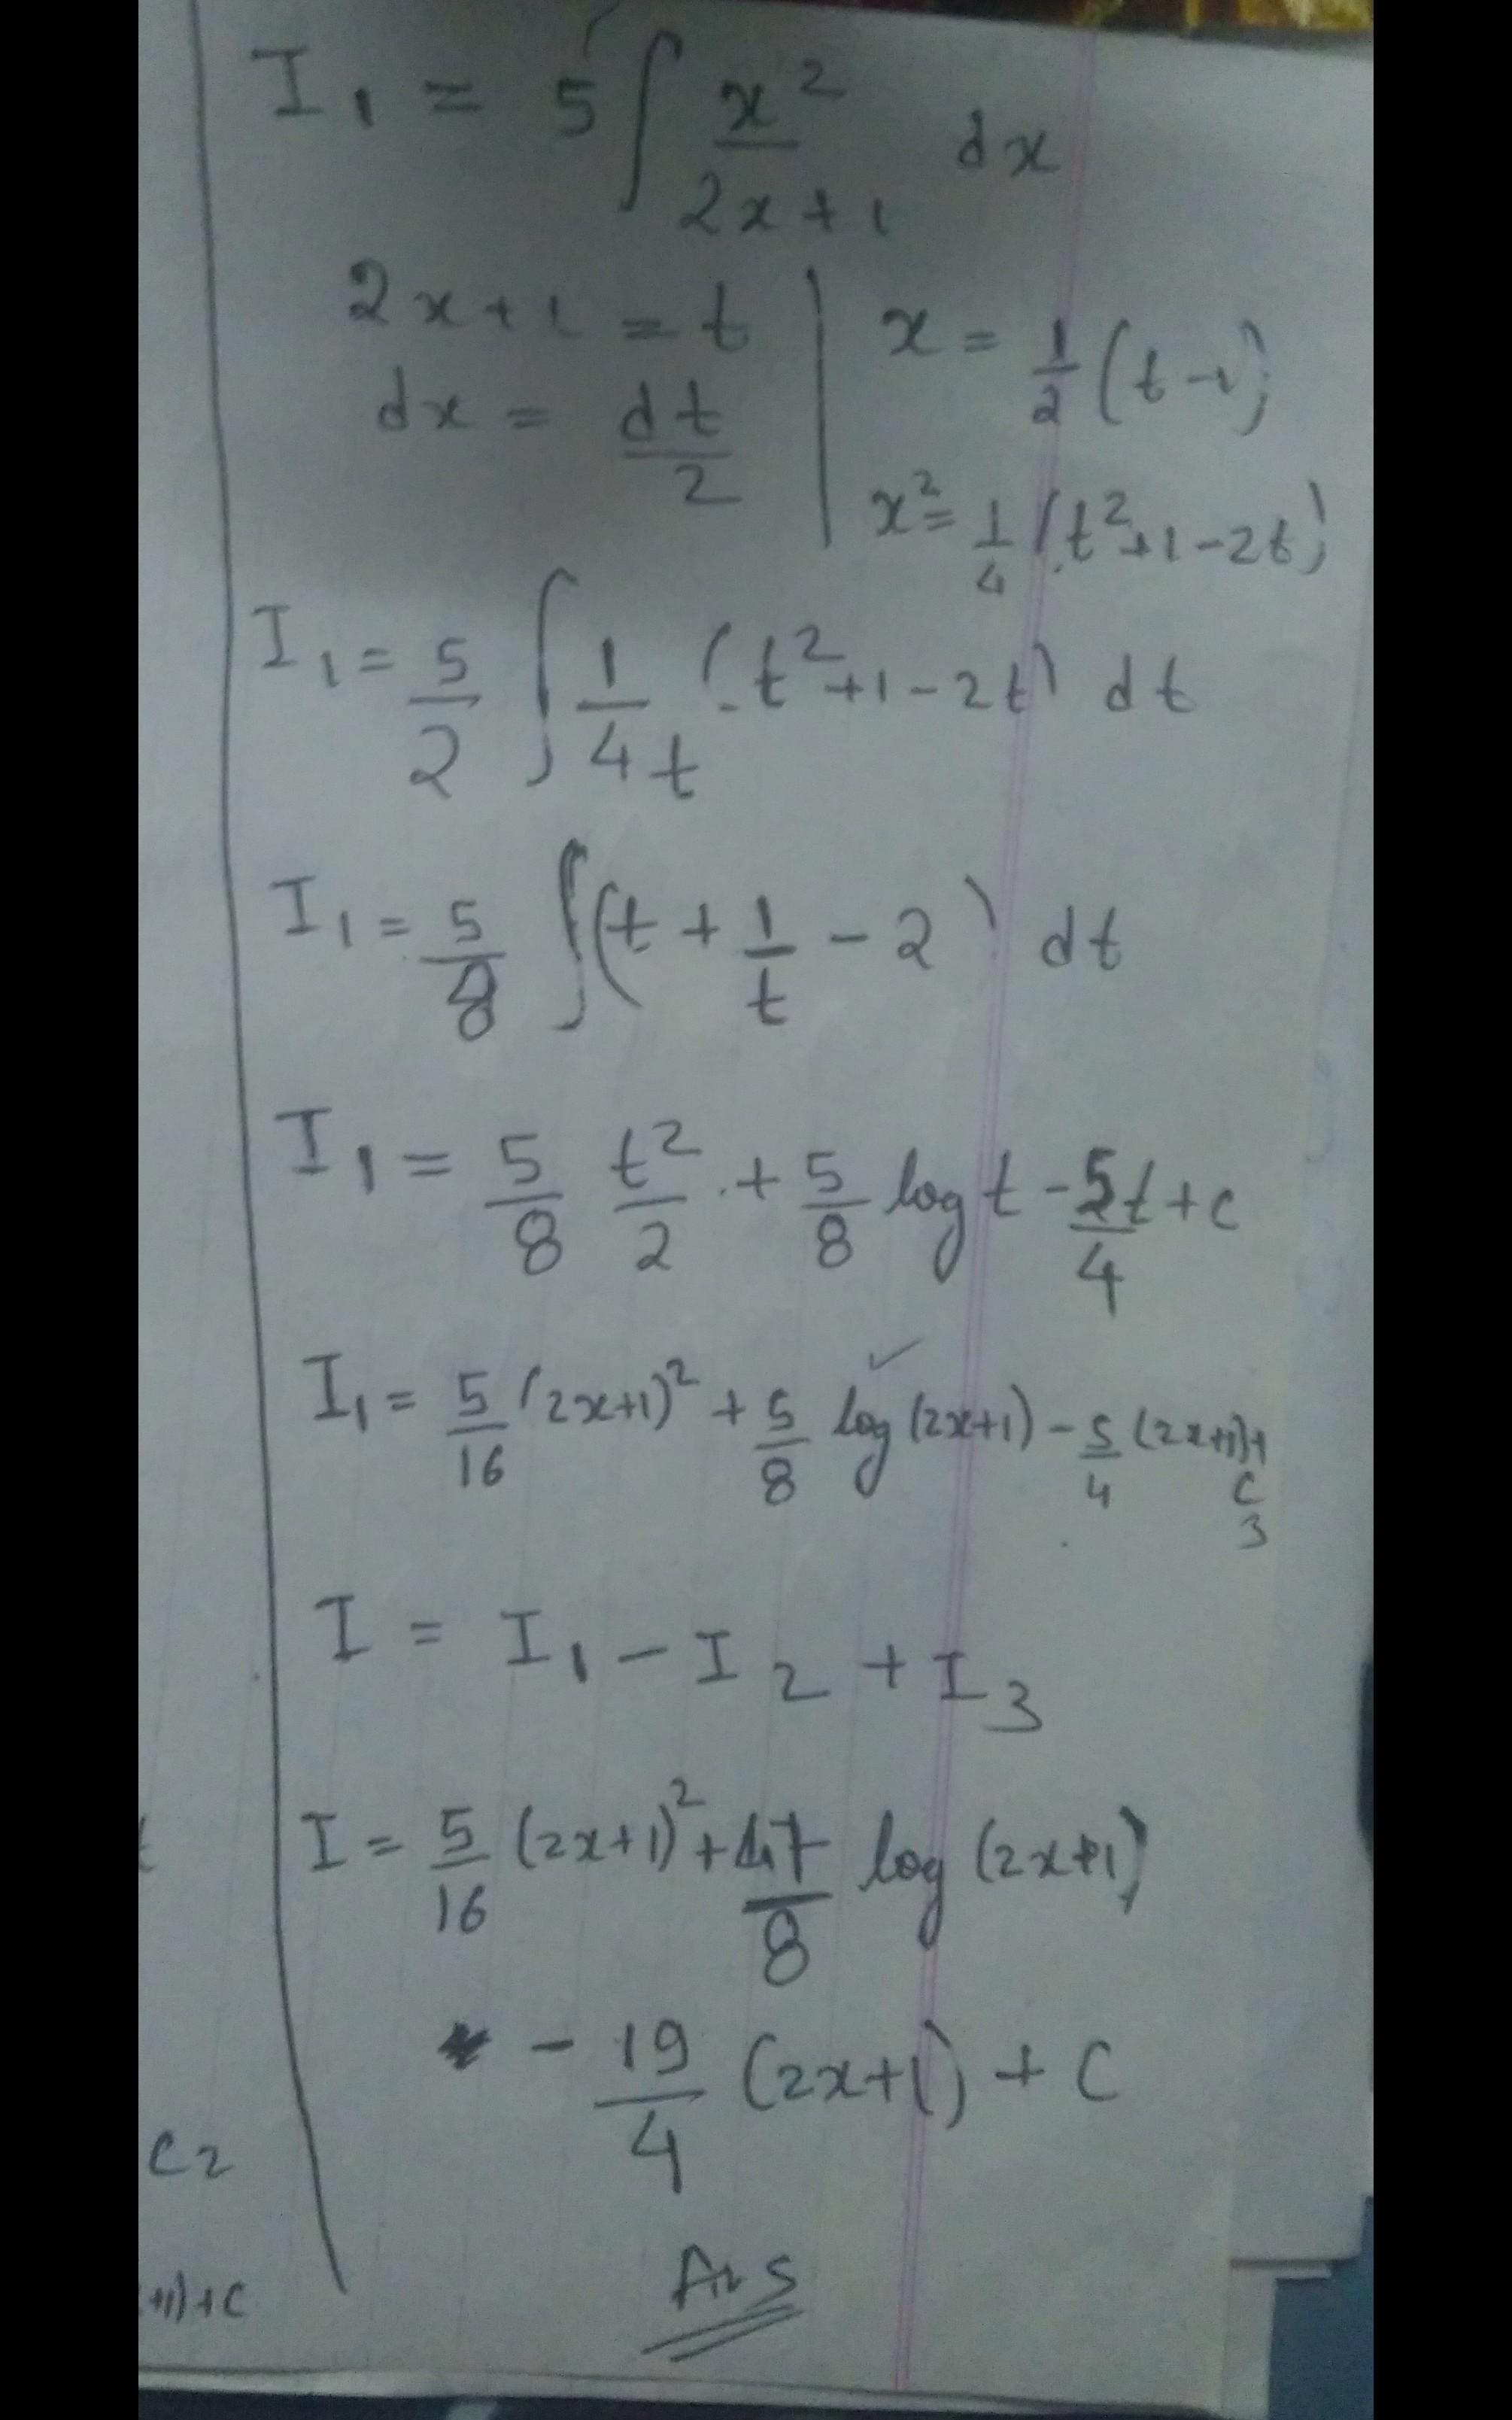 I₁ = 5 ∫ x²/(2x+1) dx
2x+1 = t | x = 1/2 (t-1)
dx = dt/2 | x² = 1/4 (t²+1-2t)
I₁ = 5/2 ∫ 1/4t (t²+1-2t) dt
I₁ = 5/8 ∫ (t + 1/t - 2) dt
I₁ = 5/8 t²/2 + 5/8 log t - 5t/4 + c
I₁ = 5/16 (2x+1)² + 5/8 log (2x+1) - 5/4 (2x+1) + c₃
I = I₁ - I₂ + I₃
I = 5/16 (2x+1)² + 47/8 log (2x+1)
- 19/4 (2x+1) + C
Ans
C₂
+1)+C